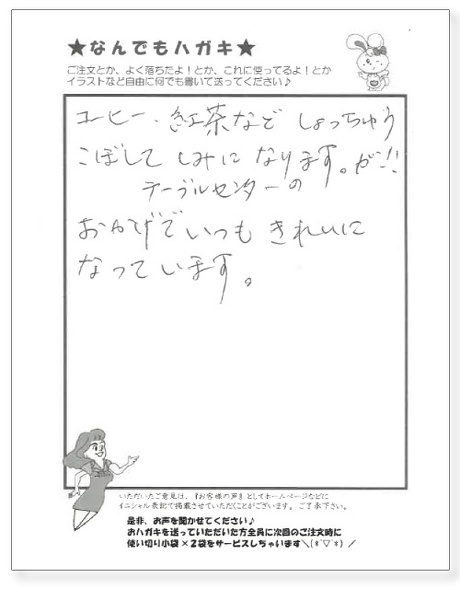 ★なんでもハガキ★
ご注文とか、よく落ちたよ！とか、これに使ってるよ！とか
イラストなど自由に何でも書いて送ってください♪
コーヒー、紅茶など しょっちゅう
こぼして しみに なります。が!!
テーブルセンターの
おかげで いつも きれいに
なっています。
いただいたご意見は、『お客様の声』としてホームページなどに
イニシャル表記で掲載させていただくことがございます。ご了承下さい。
是非、お声を聞かせてください♪
おハガキを送っていただいた方全員に次回のご注文時に
使い切り小袋×２袋をサービスしちゃいます＼(*´▽`*)／